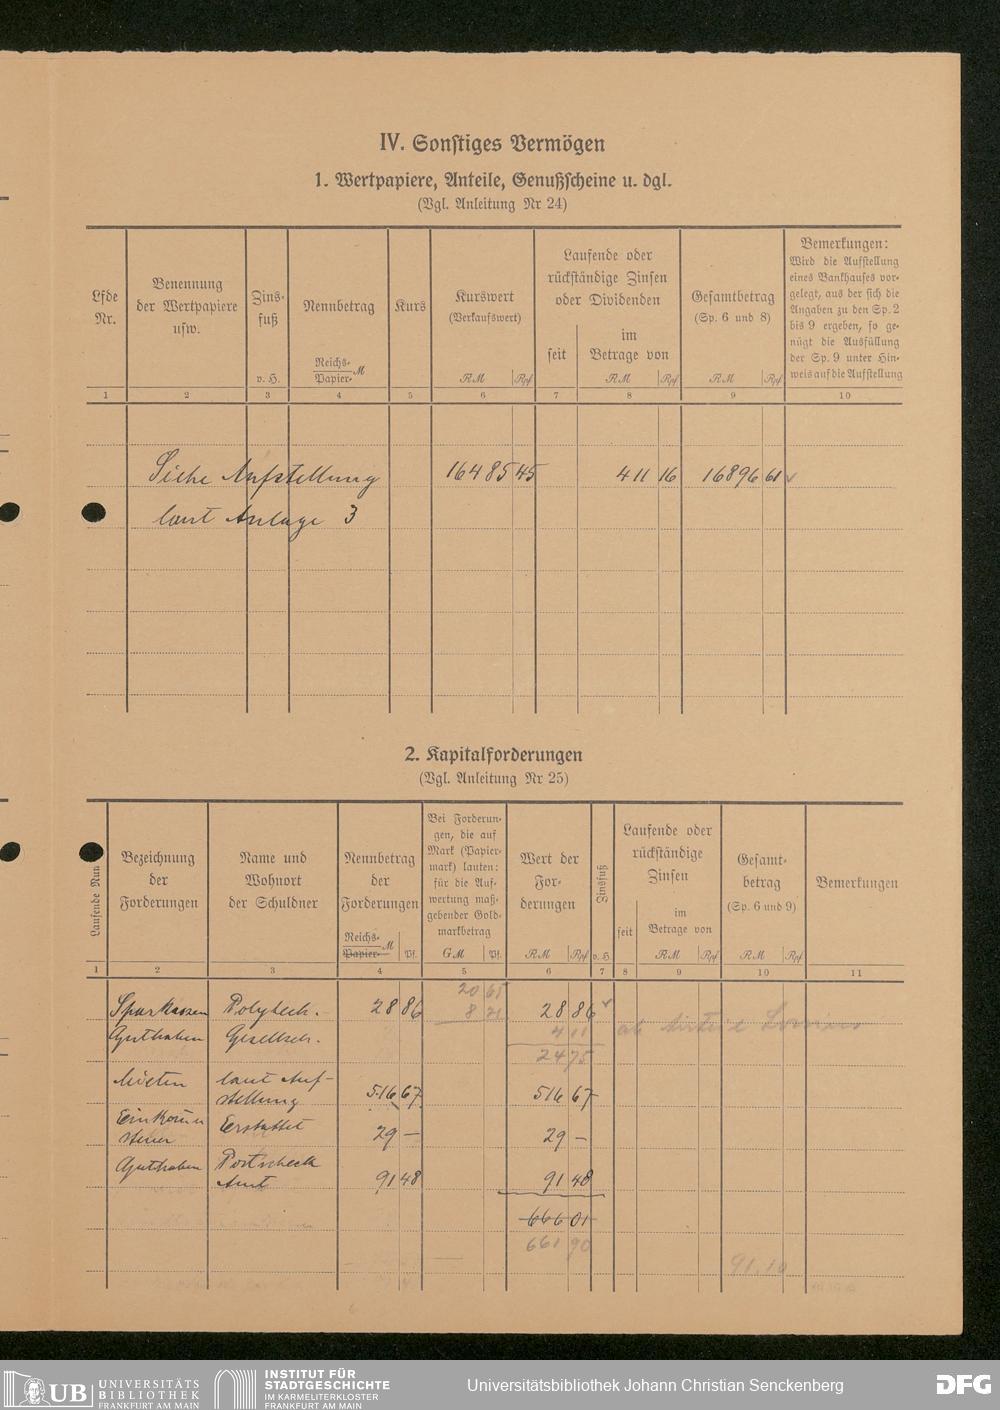 IV. Sonstiges Vermögen
1. Wertpapiere, Anteile, Genußscheine u. dgl.
(Vgl. Anleitung Nr 24)
Lfde Nr.
Benennung der Wertpapiere usw.
Zins-fuß
v. H.
Nennbetrag
Reichs- M
Papier-
Kurs
Kurswert
(Verkaufswert)
RM Rpf
Laufende oder rückständige Zinsen oder Dividenden
seit
im Betrage von
RM Rpf
Gesamtbetrag
(Sp. 6 und 8)
RM Rpf
Bemerkungen:
Wird die Aufstellung
eines Bankhauses vor-
gelegt, aus der sich die
Angaben zu den Sp. 2
bis 9 ergeben, so ge-
nügt die Ausfüllung
der Sp. 9 unter Hin-
weis auf die Aufstellung
1 2 3 4 5 6 7 8 9 10
Siehe Aufstellung 16485 45 411 16 16896 61
laut Anlage 3
2. Kapitalforderungen
(Vgl. Anleitung Nr 25)
Laufende Num
Bezeichnung der Forderungen
Name und Wohnort der Schuldner
Nennbetrag der Forderungen
Reichs- M Pf.
Papier-
Bei Forderun-
gen, die auf
Mark (Papier-
mark) lauten:
für die Auf-
wertung maß-
gebender Gold-
markbetrag
GM Pf.
Wert der For-derungen
RM Rpf
Zinsfuß
v. H.
Laufende oder rückständige Zinsen
seit
im Betrage von
RM Rpf
Gesamt-betrag
(Sp. 6 und 9)
RM Rpf
Bemerkungen
1 2 3 4 5 6 7 8 9 10 11
20 65
Sparkassen Polytech. 28 86 8 21 28 86
Guthaben Gesellsch. 4 11 ab
24 75
Mieten laut Auf-
stellung 516 67 516 67
Einkomm
steuer Erstattet 29 — 29 —
Guthaben Postscheck
Amt 91 48 91 48
666 01
661 90
91.10
UB UNIVERSITÄTS
BIBLIOTHEK
FRANKFURT AM MAIN
INSTITUT FÜR
STADTGESCHICHTE
IM KARMELITERKLOSTER
FRANKFURT AM MAIN
Universitätsbibliothek Johann Christian Senckenberg
DFG